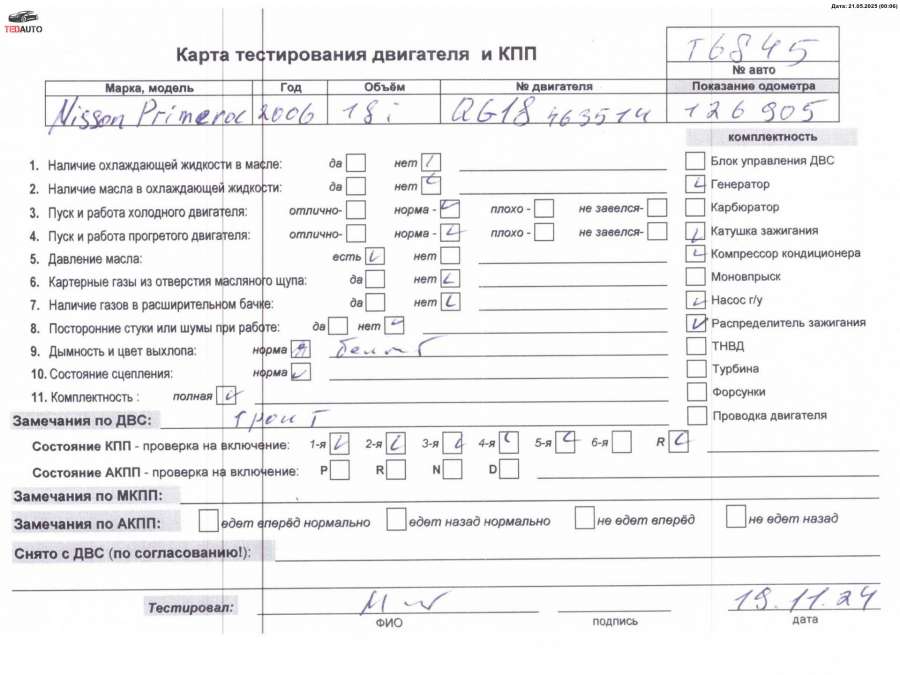 Дата: 21.05.2025 (00:06)
TEDAUTO
Карта тестирования двигателя и КПП
T6845
№ авто
Марка, модель Год Объём № двигателя Показание одометра
Nissan Primera 2006 18i QG18 463514 126905
комплектность
1. Наличие охлаждающей жидкости в масле: да нет
Блок управления ДВС
2. Наличие масла в охлаждающей жидкости: да нет
Генератор
3. Пуск и работа холодного двигателя: отлично- норма - плохо - не завелся-
Карбюратор
4. Пуск и работа прогретого двигателя: отлично- норма - плохо - не завелся-
Катушка зажигания
5. Давление масла: есть нет
Компрессор кондиционера
6. Картерные газы из отверстия масляного щупа: да нет
Моновпрыск
7. Наличие газов в расширительном бачке: да нет
Насос г/у
8. Посторонние стуки или шумы при работе: да нет
Распределитель зажигания
9. Дымность и цвет выхлопа: норма
ТНВД
10. Состояние сцепления: норма
Турбина
11. Комплектность : полная
Форсунки
Замечания по ДВС:
Проводка двигателя
Состояние КПП - проверка на включение: 1-я 2-я 3-я 4-я 5-я 6-я R
Состояние АКПП - проверка на включение: P R N D
Замечания по МКПП:
Замечания по АКПП: едет вперёд нормально едет назад нормально не едет вперёд не едет назад
Снято с ДВС (по согласованию!):
Тестировал:
19.11.24
ФИО подпись дата